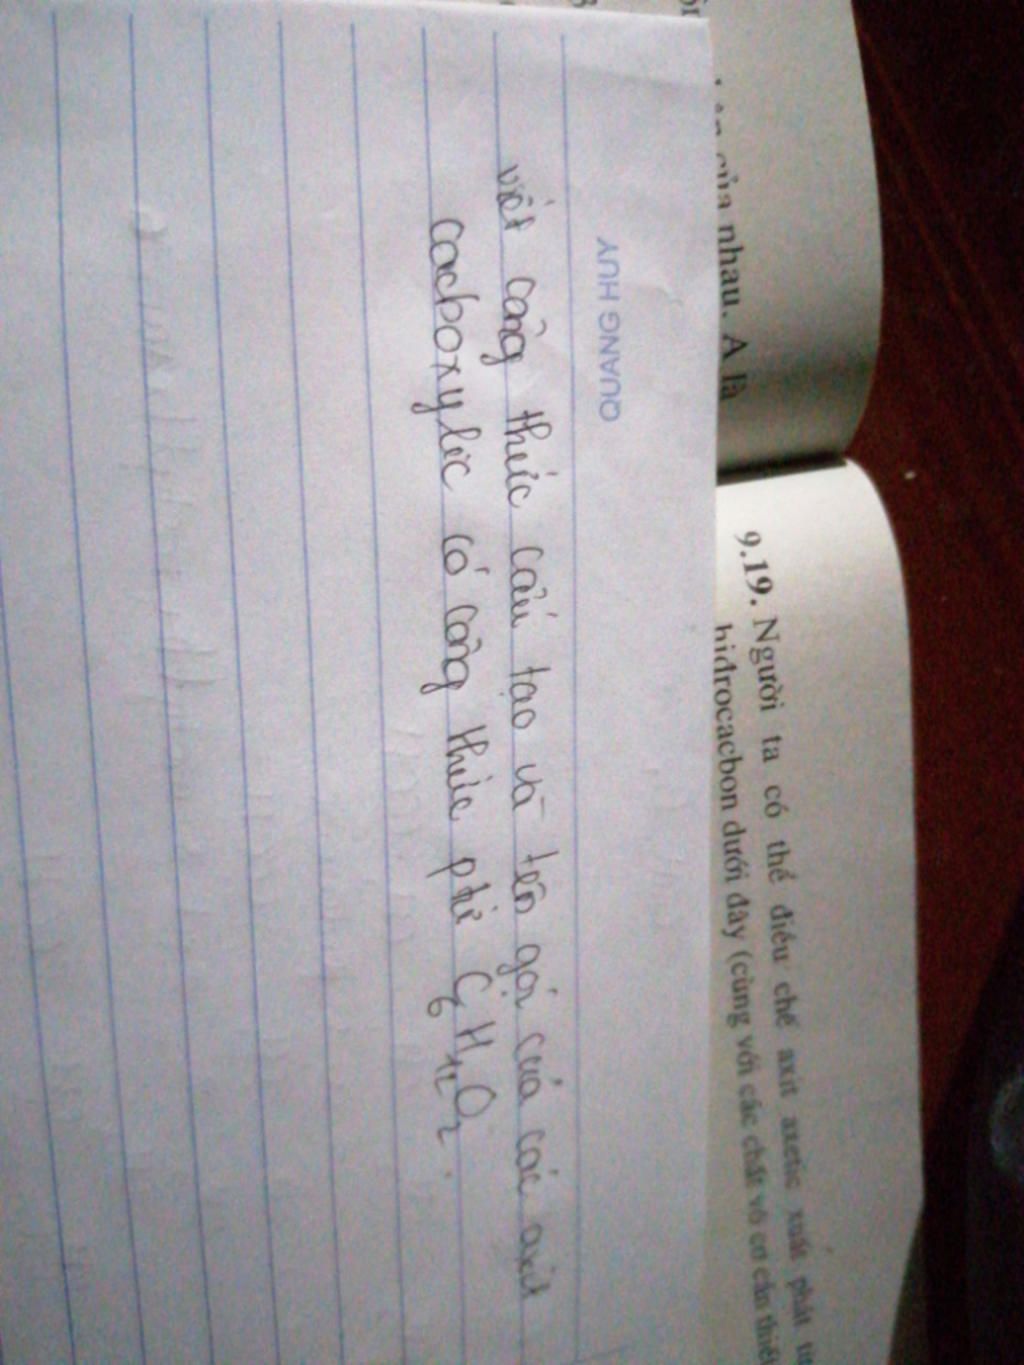 của nhau. A là
9.19. Người ta có thể điều chế axit axetic xuất phát từ
hiđrocacbon dưới đây (cùng với các chất vô cơ cần thiết
QUANG HUY
viết công thức cấu tạo và tên gọi của các axit
cacboxylic có công thức ptử C6H12O2.